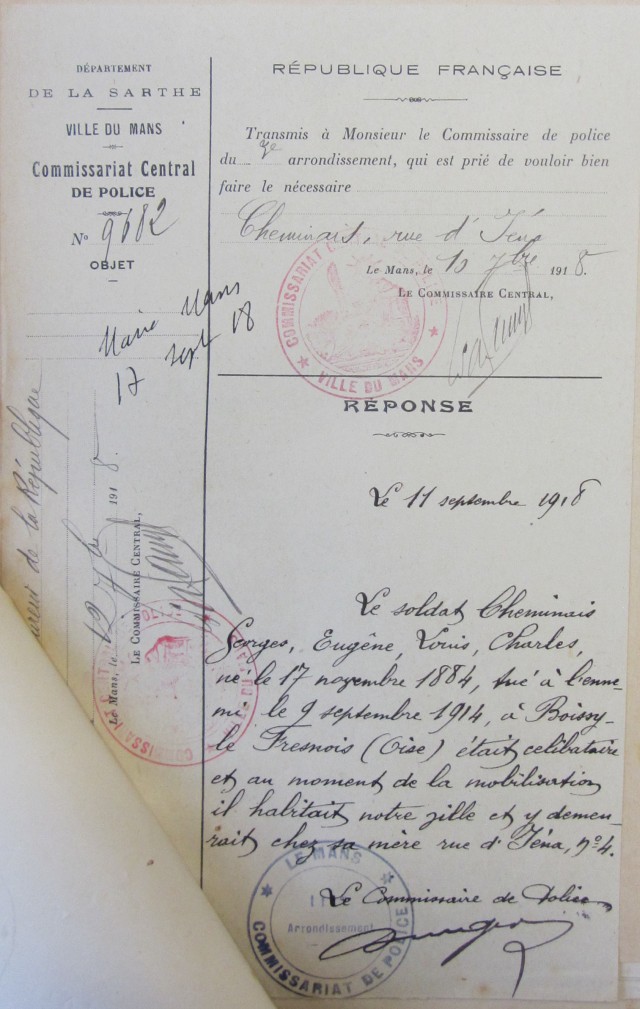 DÉPARTEMENT
DE LA SARTHE
VILLE DU MANS
Commissariat Central
DE POLICE
N° 9682
OBJET
Mairie Mans
17 sept 18
de la République
Le Mans, le 12 7bre 1918.
LE COMMISSAIRE CENTRAL,
RÉPUBLIQUE FRANÇAISE
Transmis à Monsieur le Commissaire de police
du 3e arrondissement, qui est prié de vouloir bien
faire le nécessaire
Cheminais, rue d'Iéna
Le Mans, le 10 7bre 1918.
LE COMMISSAIRE CENTRAL,
COMMISSARIAT
VILLE DU MANS
RÉPONSE
Le 11 septembre 1918
Le soldat Cheminais
Georges, Eugène, Louis, Charles,
né le 17 novembre 1884, tué à l'enne-
mi le 9 septembre 1914, à Boissy-
le Fresnois (Oise) était celibataire
et au moment de la mobilisation
il habitait notre ville et y demeu-
rait chez sa mère rue d'Iéna, n° 4.
Le Commissaire de Police
LE MANS
Arrondissement
COMMISSARIAT DE POLICE